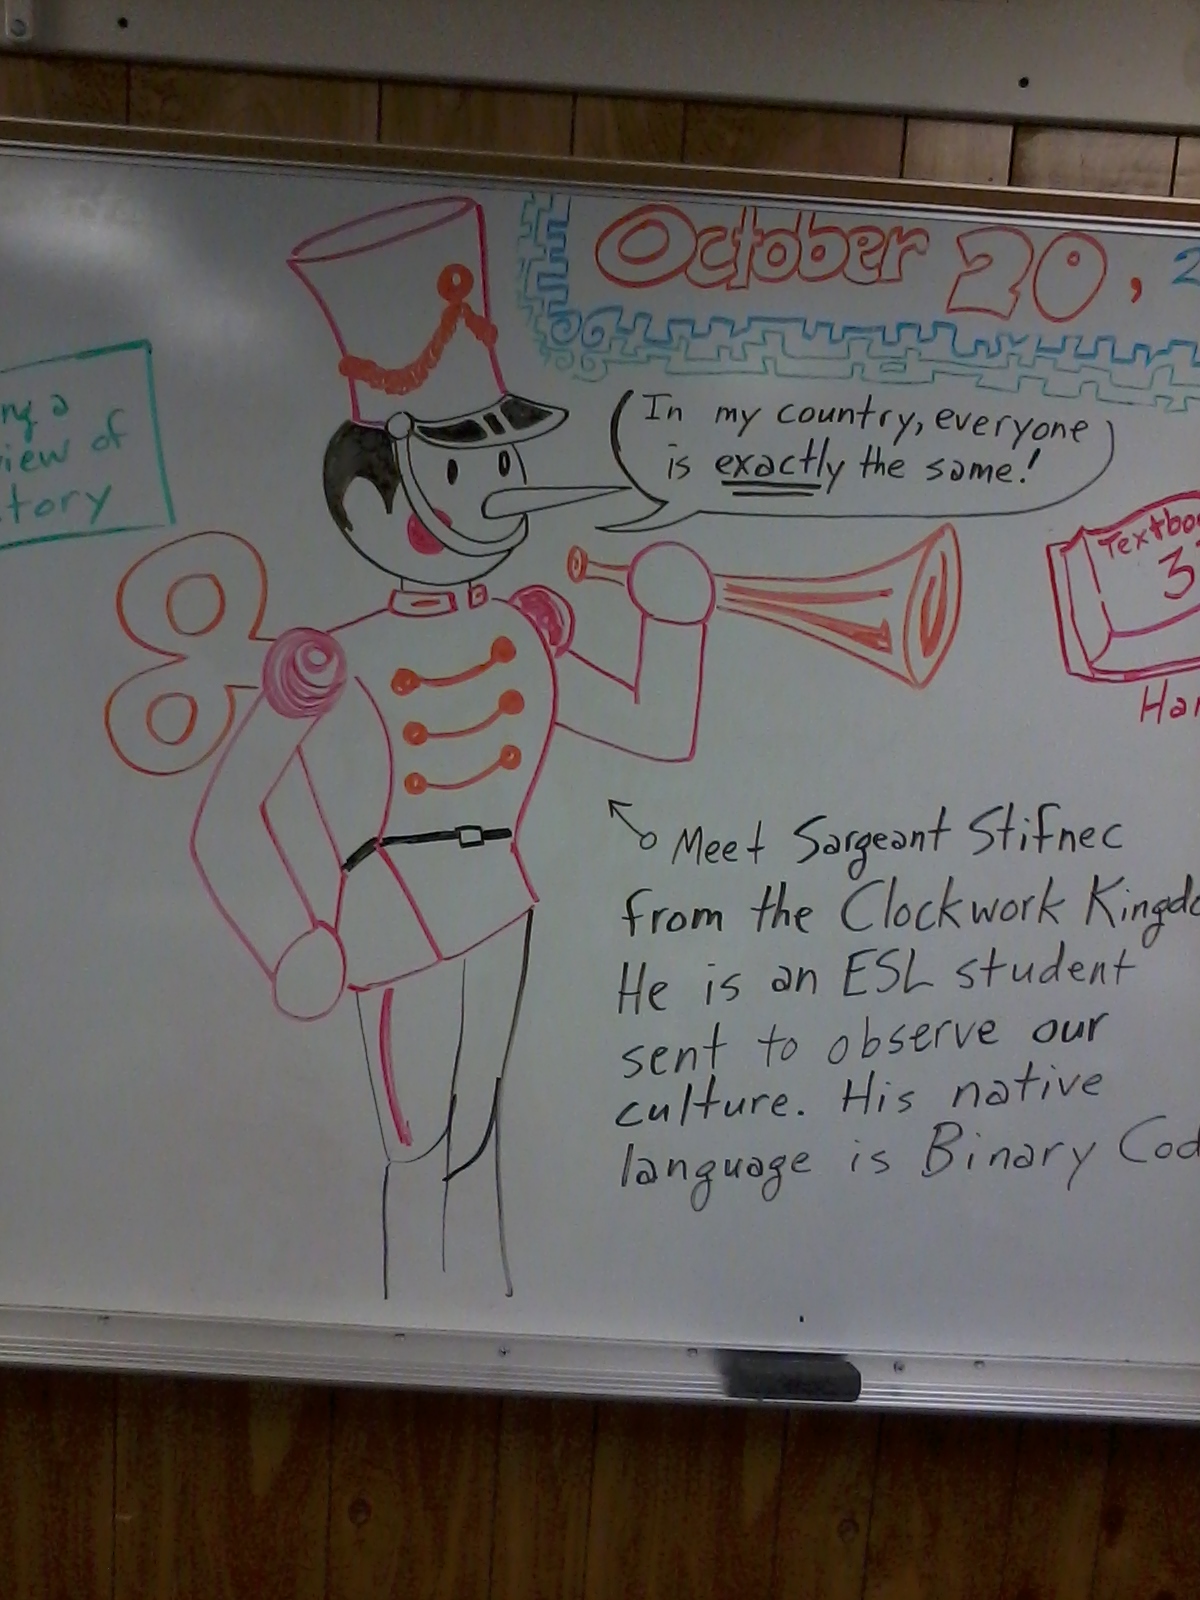 October 20, 2
ng a
iew of
tory
In my country, everyone
is exactly the same!
Textbo
3
Har
Meet Sargeant Stifnec
from the Clockwork Kingdo
He is an ESL student
sent to observe our
culture. His native
language is Binary Cod